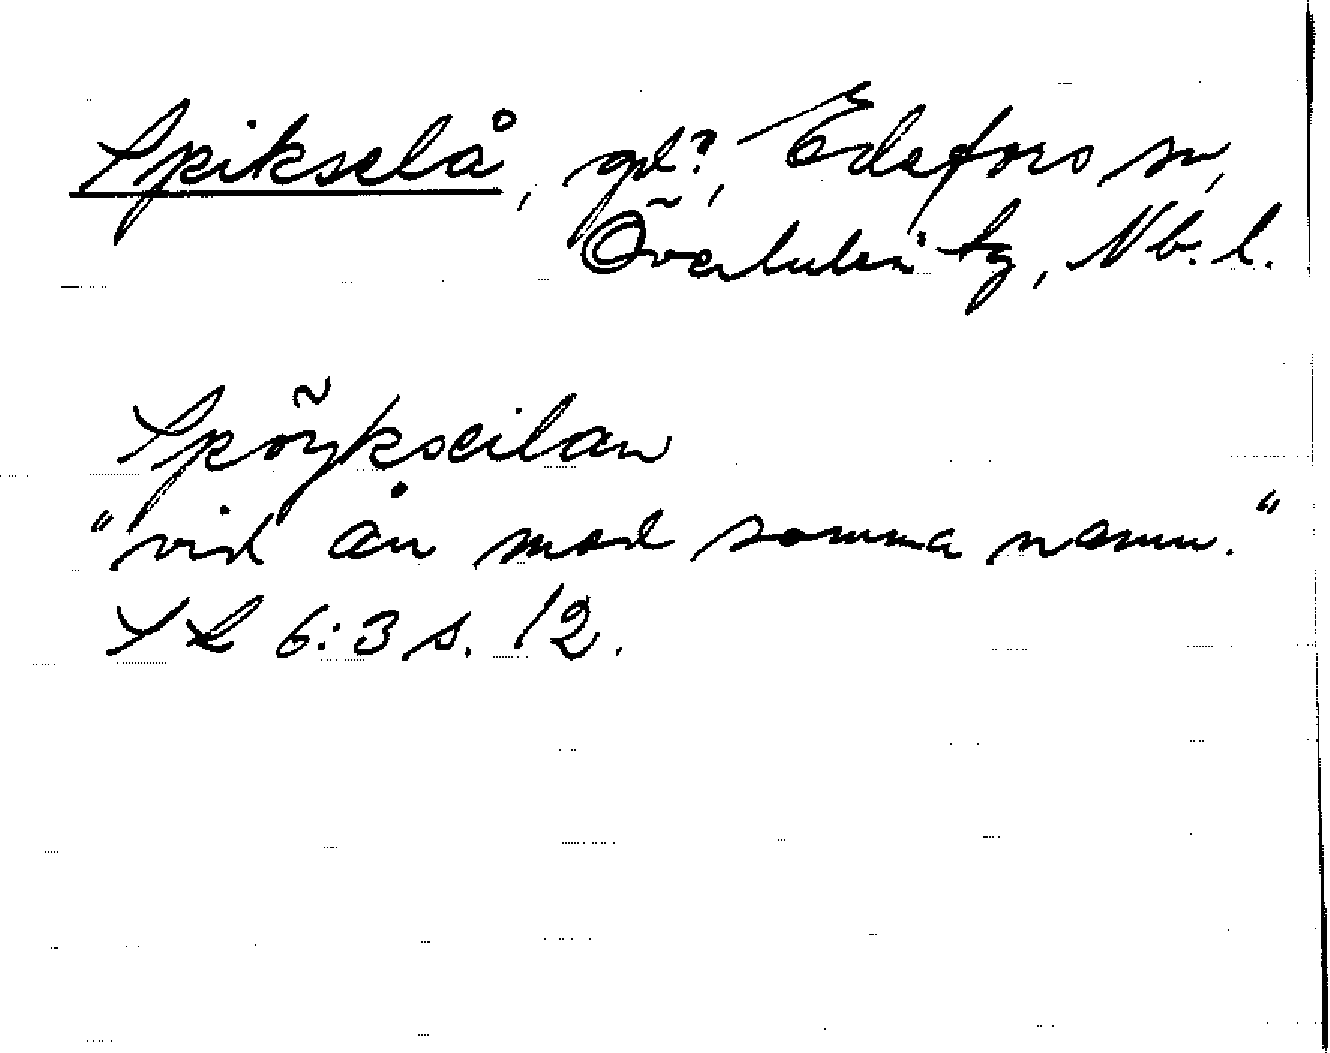 Spikselå, gd?, Edefors sn,
Överluleå tg, Nb. l.
Spöykseilan
"vid ån med samma namn."
SL 6:3 s. 12.